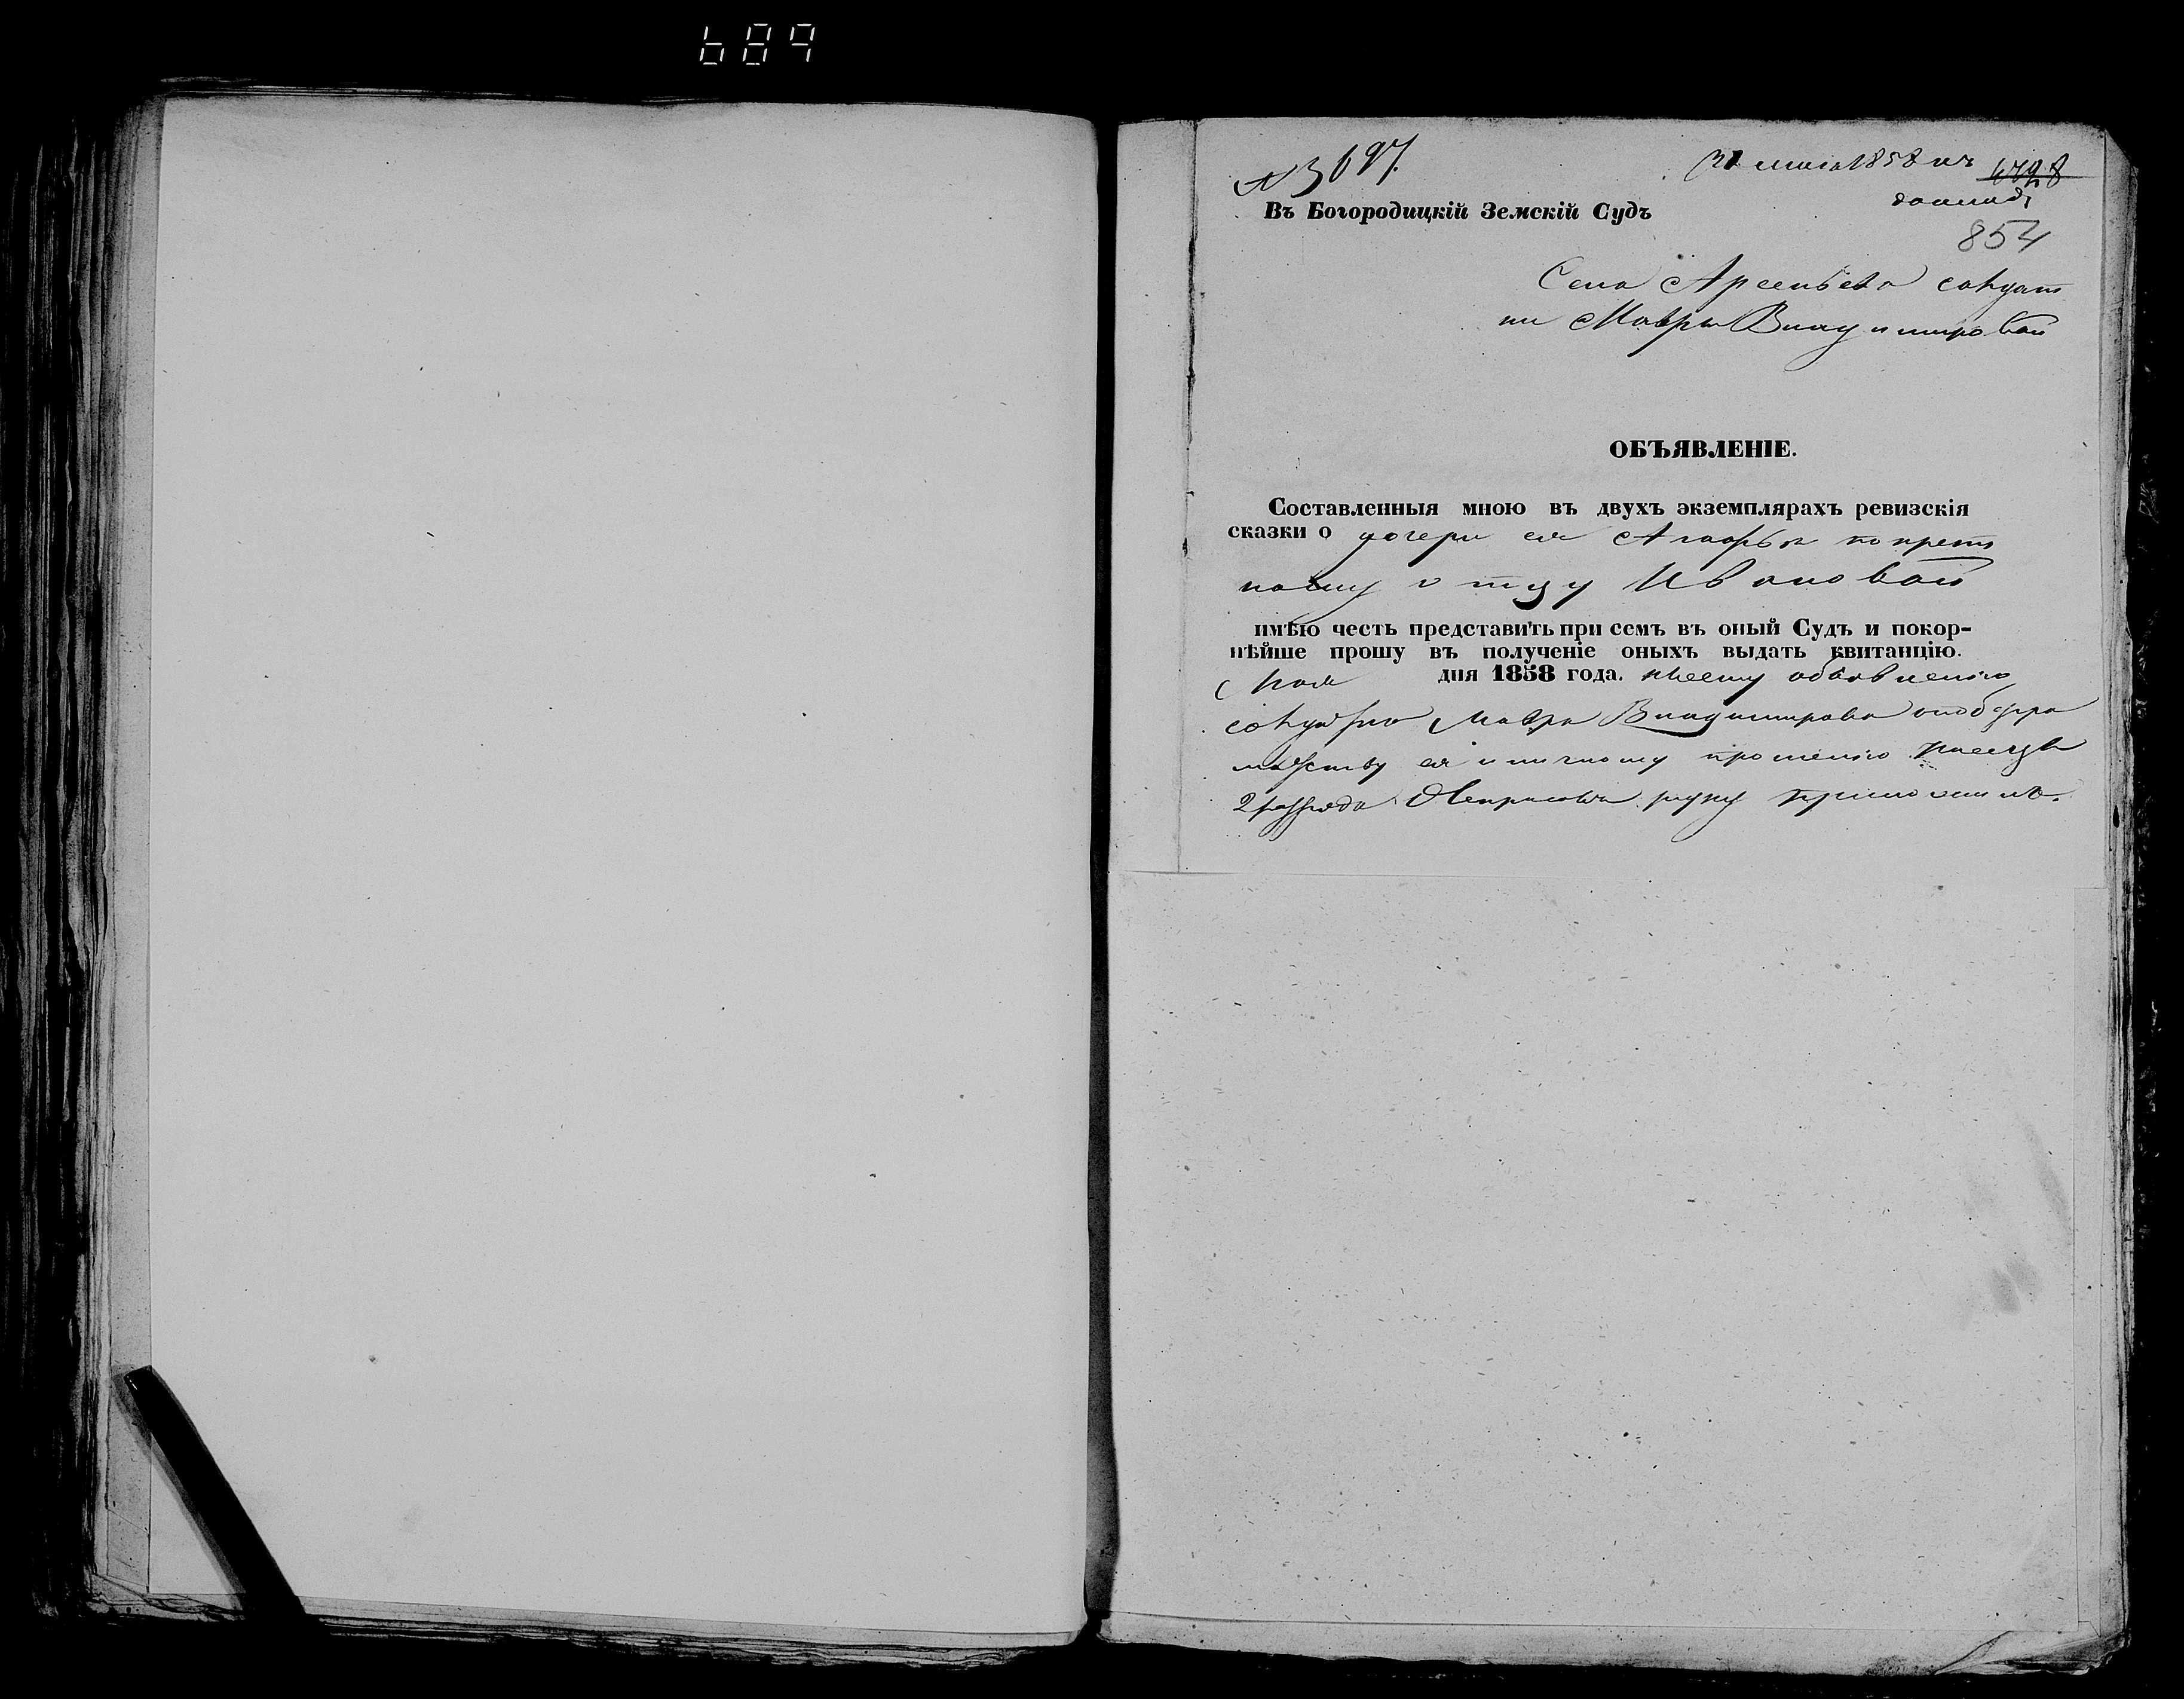 689
№ 3697.
31 мая 1858 №
доклад
854
Въ Богородицкій Земскій Судъ
Села Арсеньева солдат
ки Мавры Владимировой
ОБЪЯВЛЕНІЕ.
Составленныя мною въ двухъ экземплярахъ ревизскія
сказки о дочери ея по крест
ному отцу Ивановой
имѣю честь представить при семъ въ оный Судъ и покор-
нѣйше прошу въ полученіе оныхъ выдать квитанцію.
Мая дня 1858 года. К сему объявленію
солдатка Мавра Владимирова а по безгра
мотству ея и личному прошенію писецъ
2 разряда Некрасовъ руку приложилъ.